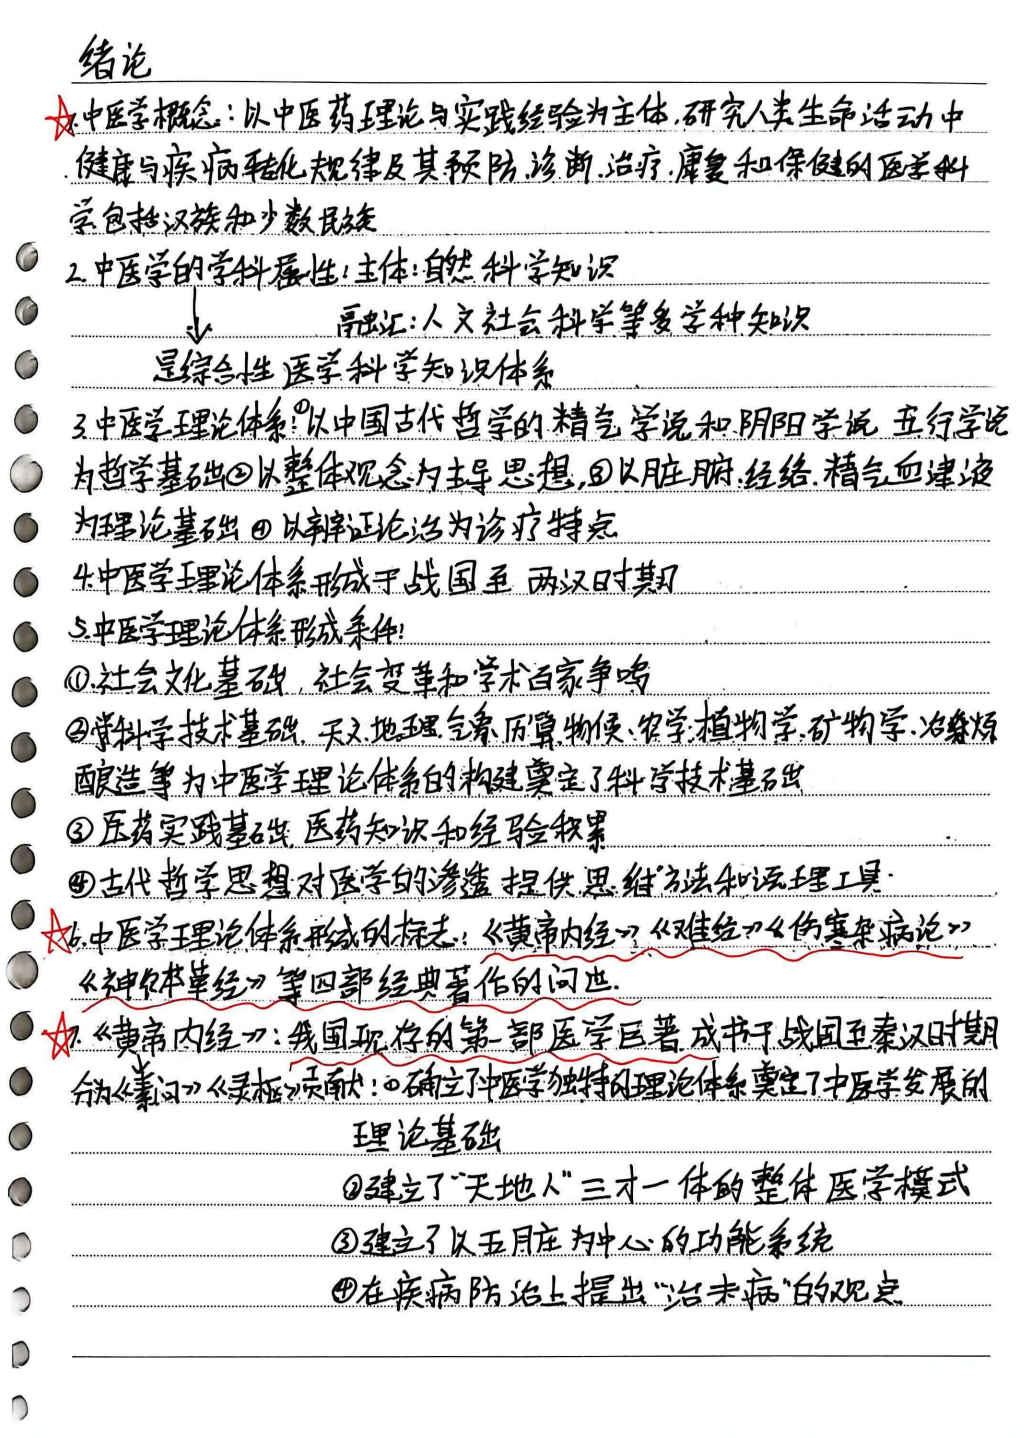 绪论
1.中医学概念:以中医药理论与实践经验为主体.研究人类生命活动中
健康与疾病转化规律及其预防.诊断.治疗.康复和保健的医学科
学包括汉族和少数民族
2.中医学的学科属性:主体:自然科学知识
融汇:人文社会科学等多学种知识
是综合性医学科学知识体系
3.中医学理论体系:①以中国古代哲学的精气学说和阴阳学说 五行学说
为哲学基础②以整体观念为主导思想,③以脏腑.经络.精气血津液
为理论基础④以辨证论治为诊疗特点
4.中医学理论体系形成于战国至两汉时期
5.中医学理论体系形成条件:
①.社会文化基础,社会变革和学术百家争鸣
②科学技术基础.天文.地理.气象.历算.物候、农学.植物学.矿物学、冶
酿造等为中医学理论体系的构建奠定了科学技术基础
③医药实践基础.医药知识和经验积累
④古代哲学思想对医学的渗透 提供思维方法和说理工具.
6.中医学理论体系形成的标志:《黄帝内经》《难经》《伤寒杂病论》
《神农本草经》等四部经典著作的问世.
7.《黄帝内经》:我国现存的第一部医学巨著成书于战国至秦汉时期
分为《素问》《灵枢》贡献:①确立了中医学独特的理论体系奠定了中医学发展的
理论基础
②建立了“天地人”三才一体的整体医学模式
③建立了以五脏为中心的功能系统
④在疾病防治上提出“治未病”的观点